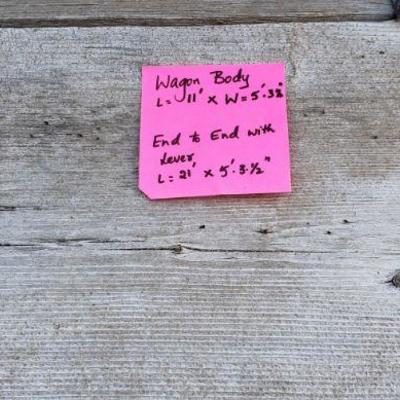 Wagon Body
L= 11' x W= 5'.3½"
End to End with
Lever
L= 21' x 5'.3.½"